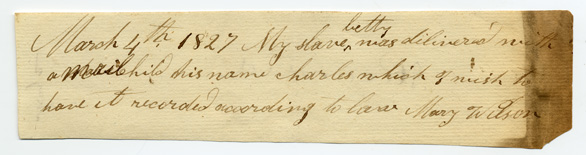 March 4th 1827 My slave betty was delivered with
a mail child his name charles which I wish to
have it recorded according to law Mary Wilson